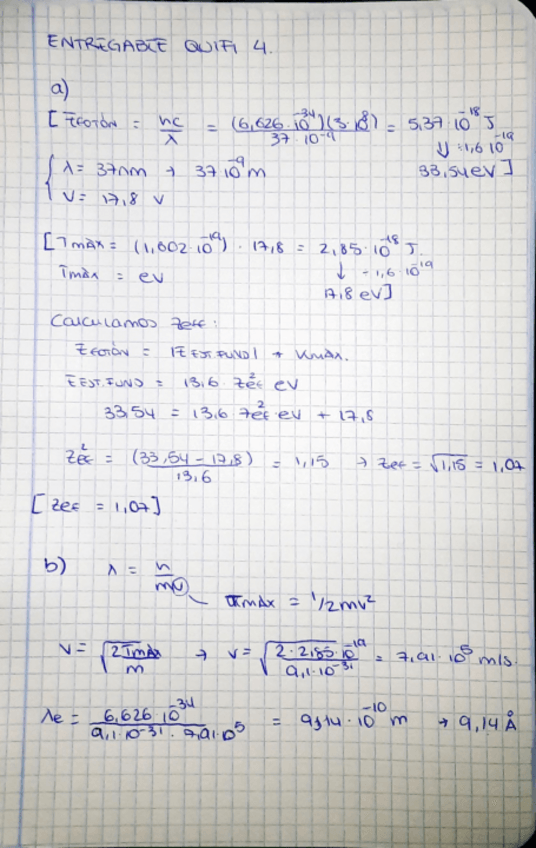 ENTREGABLE QUIFI 4.
a)
[ EFOTÓN = hc/λ = (6,626·10^-34)(3·10^8)/37·10^-9 = 5,37·10^-18 J
↓ :1,6 10^-19
33,54 eV ]
{ λ = 37nm → 37 10^-9 m
V = 17,8 V
[ Tmáx = (1,602·10^-19) · 17,8 = 2,85·10^-18 J.
Tmáx = eV ↓ ÷1,6·10^19
17,8 eV]
Calculamos Zeff:
EFOTÓN = |E EST.FUND| + Kmáx.
E EST.FUND = 13,6 · Zef^2 eV
33,54 = 13,6 · Zef^2 eV + 17,8
Zef^2 = (33,54 - 17,8)/13,6 = 1,15 → Zef = √1,15 = 1,07
[ Zef = 1,07 ]
b) λ = h/mv
Tmáx = 1/2mv^2
v = √(2Tmáx/m) → v = √(2·2,85·10^-19/9,1·10^-31) = 7,91·10^5 m/s.
λe = 6,626 10^-34/9,1·10^-31 · 7,91·10^5 = 9,14·10^-10 m → 9,14 Å